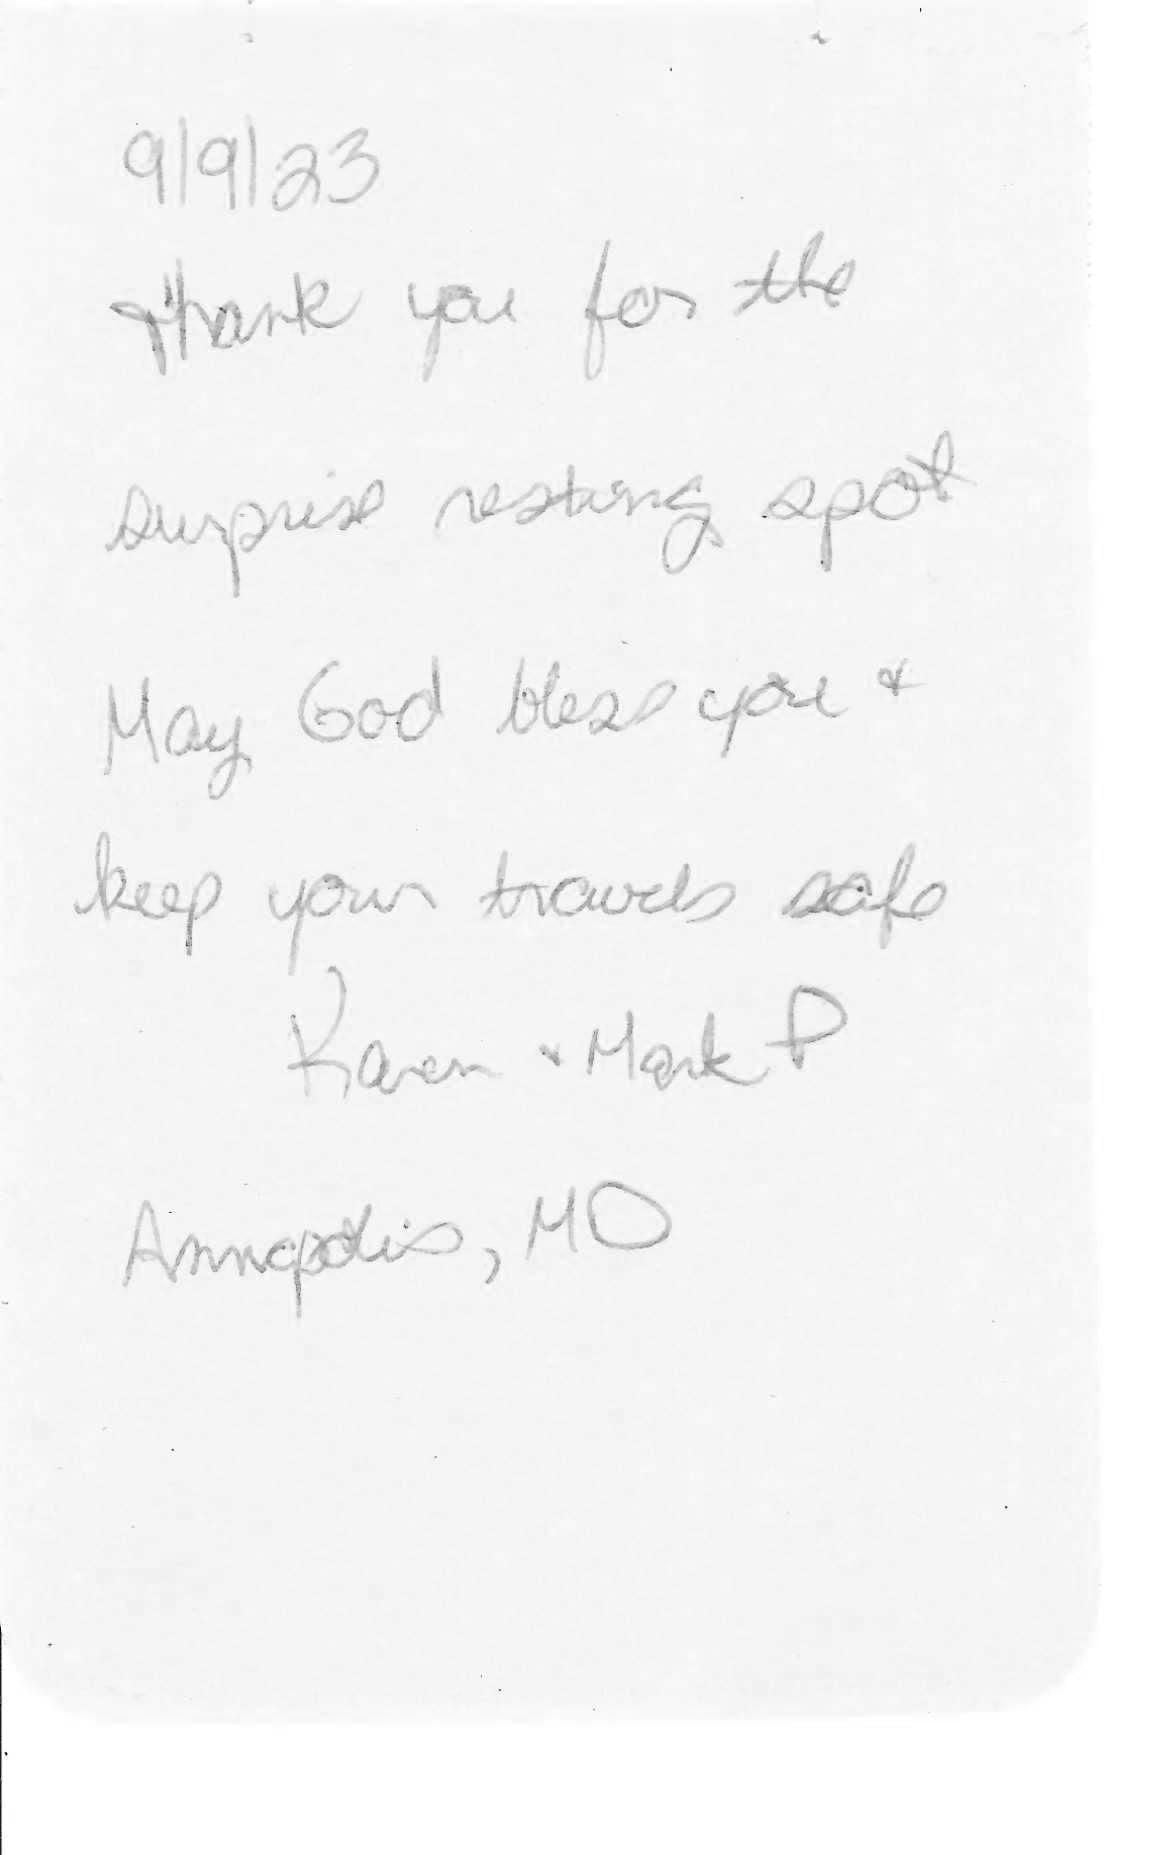 9/9/23
Thank you for the
surprise resting spot
May God bless you &
keep your travels safe
Karen & Mark P
Annapolis, MD